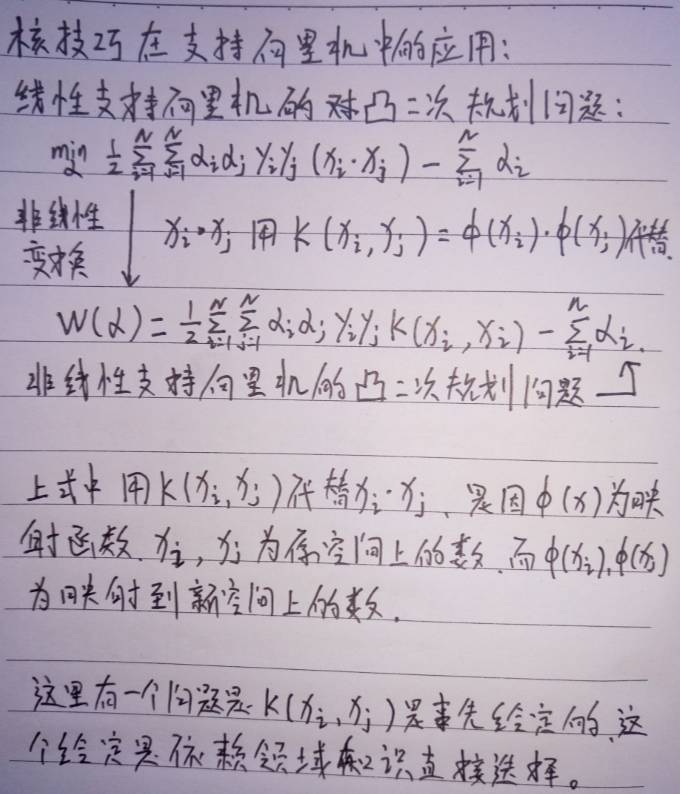 核技巧在支持向量机中的应用:
线性支持向量机的对凸二次规划问题:
min α 1/2 Σ_{i=1}^{N} Σ_{j=1}^{N} α_i α_j y_i y_j (x_i · x_j) - Σ_{i=1}^{N} α_i
非线性变换 ↓ x_i · x_j 用 K(x_i, x_j) = φ(x_i)·φ(x_j)代替.
W(α) = 1/2 Σ_{i=1}^{N} Σ_{j=1}^{N} α_i α_j y_i y_j K(x_i, x_i) - Σ_{i=1}^{N} α_i.
非线性支持向量机的凸二次规划问题 ↑
上式中用K(x_i, x_j)代替x_i · x_j、是因φ(x)为映
射函数. x_i, x_j 为原空间上的数. 而φ(x_i), φ(x_j)
为映射到新空间上的数.
这里有一个问题是. K(x_i, x_j)是事先给定的,这
个给定是依赖领域知识直接选择。